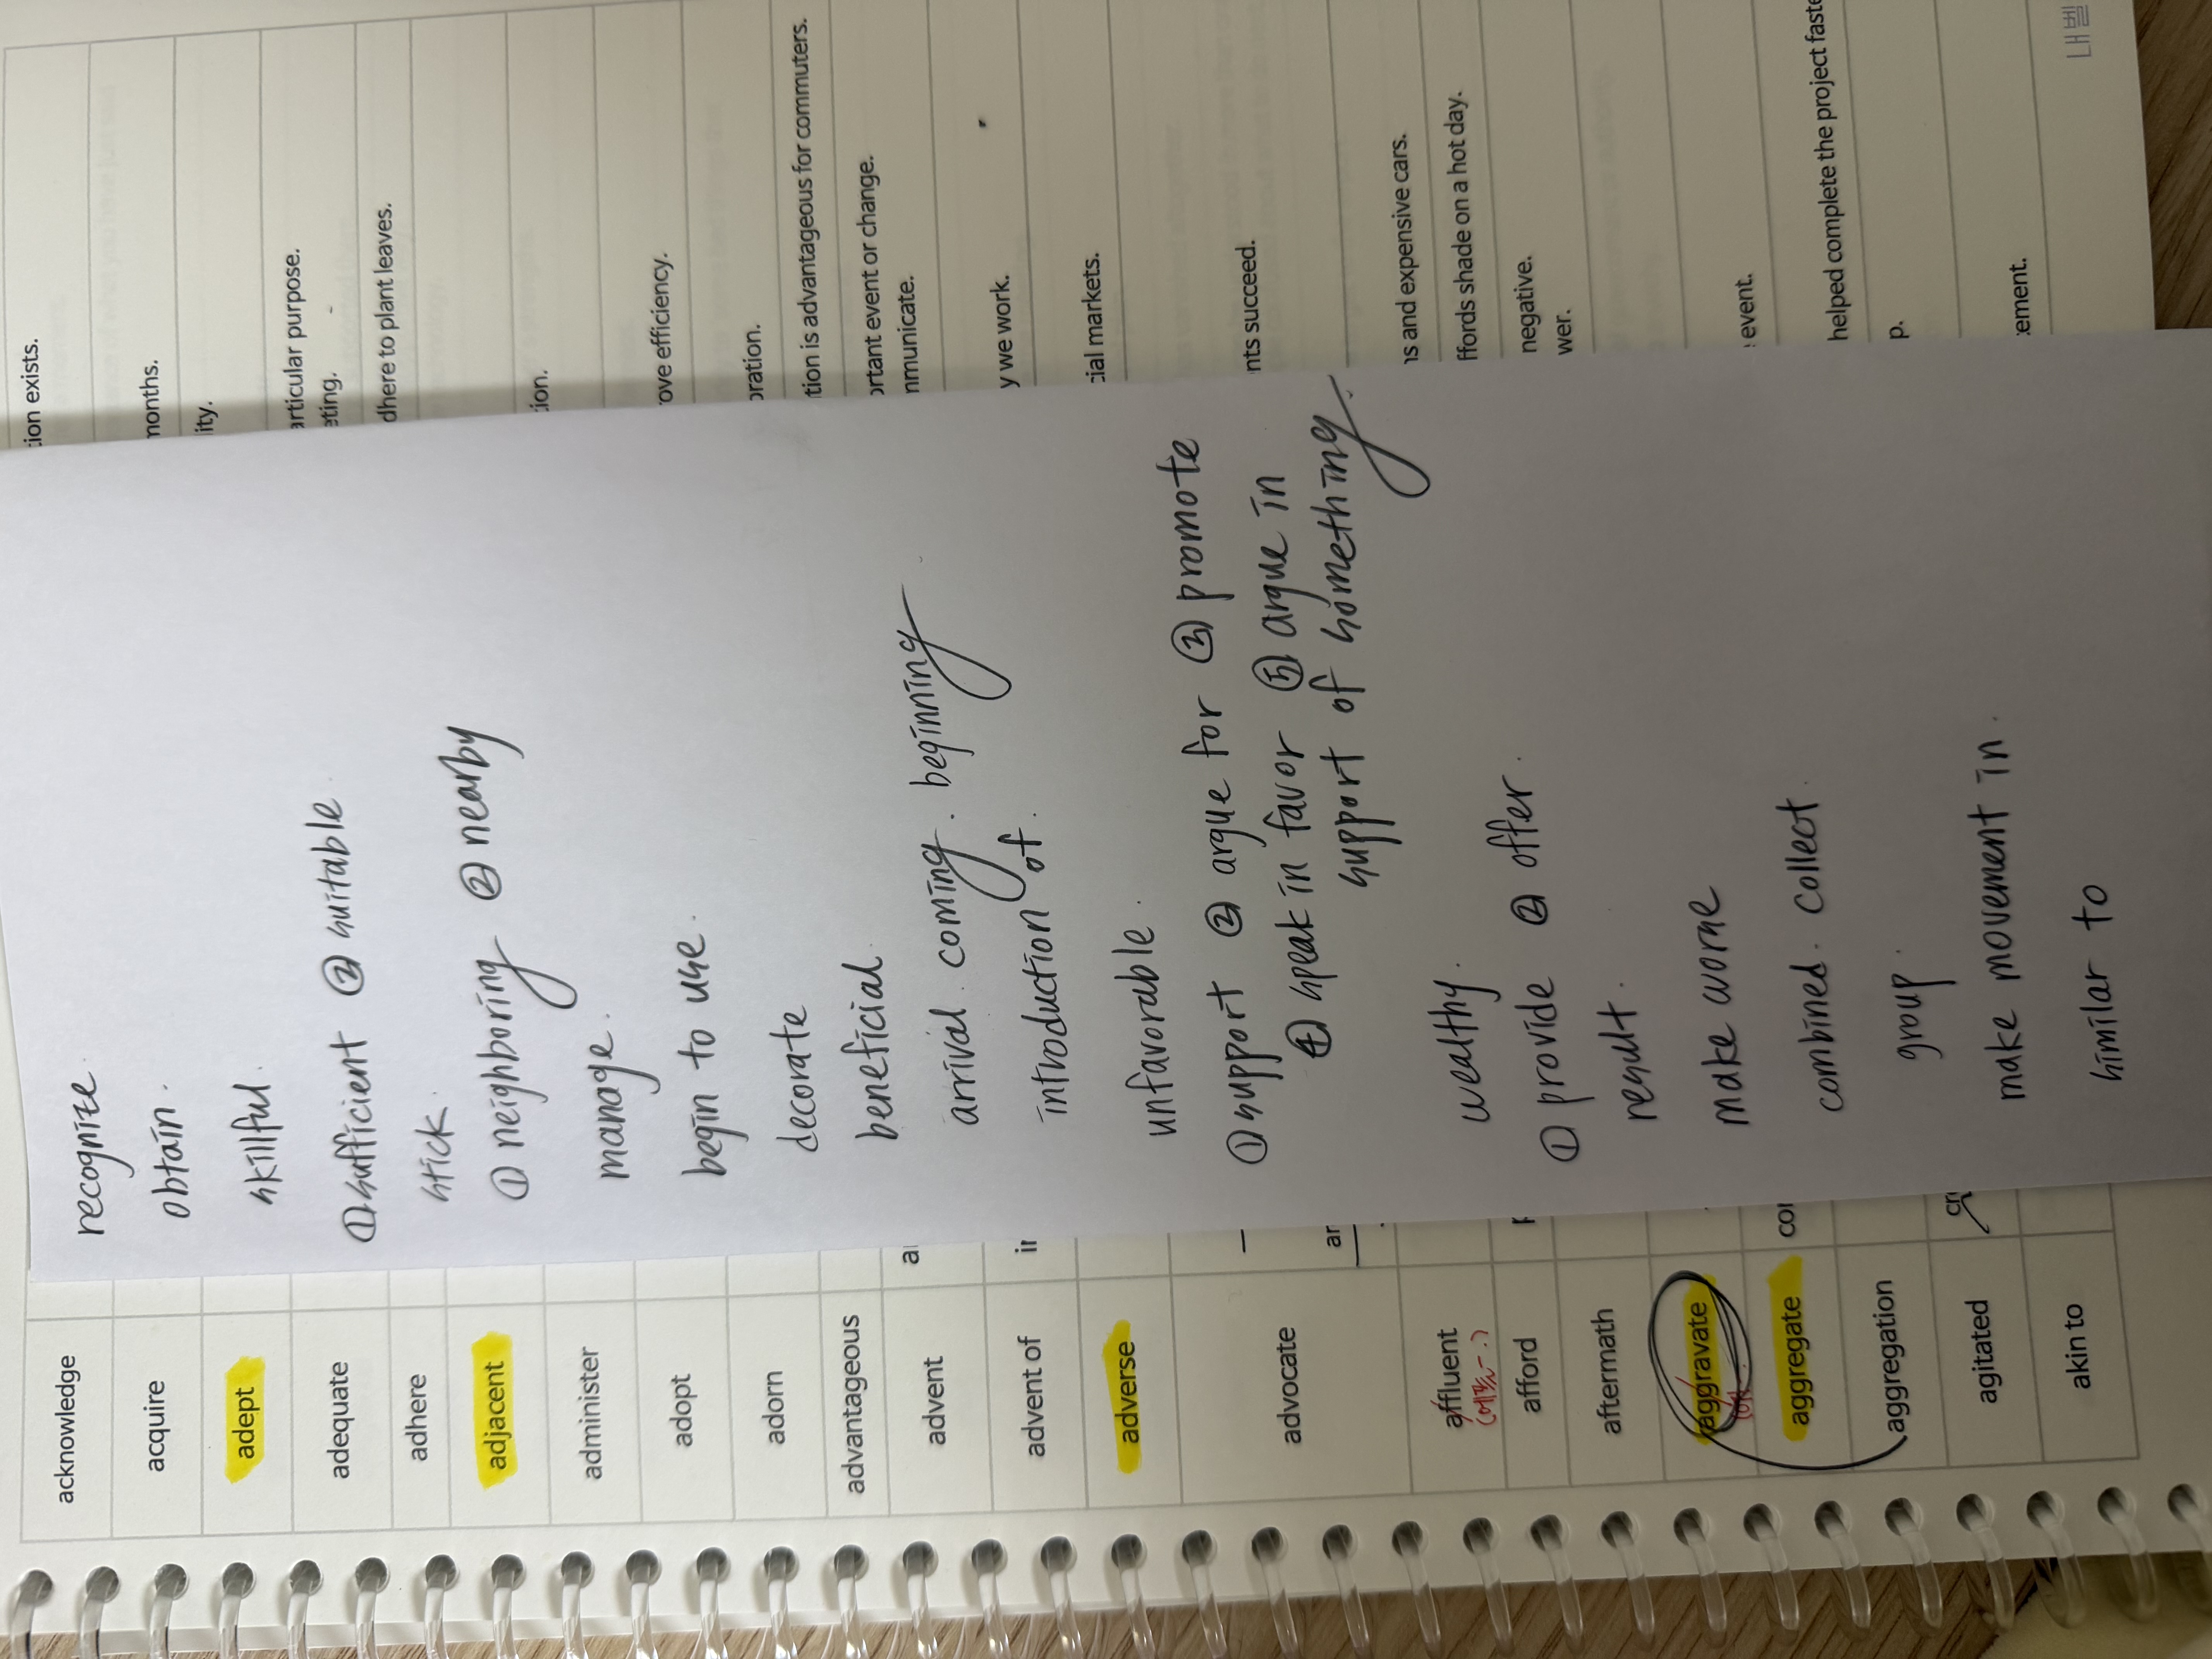 acknowledge
recognize.
tion exists.
acquire
obtain.
months.
adept
skillful.
lity.
adequate
① sufficient ② suitable.
articular purpose.
eting.
adhere
stick.
dhere to plant leaves.
adjacent
① neighboring ② nearby
tion.
administer
manage.
adopt
begin to use.
ove efficiency.
adorn
decorate
oration.
advantageous
beneficial.
tion is advantageous for commuters.
advent
arrival. coming. beginning
ortant event or change.
mmunicate.
advent of
introduction of.
y we work.
adverse
unfavorable.
cial markets.
advocate
① support ② argue for ③ promote
④ speak in favor ⑤ argue in
support of something.
nts succeed.
affluent
wealthy.
ns and expensive cars.
afford
① provide ② offer.
ffords shade on a hot day.
aftermath
result.
negative.
wer.
aggravate
make worse
aggregate
combined. collect.
event.
aggregation
group.
helped complete the project faste
p.
agitated
make movement in.
cement.
akin to
similar to
내벨